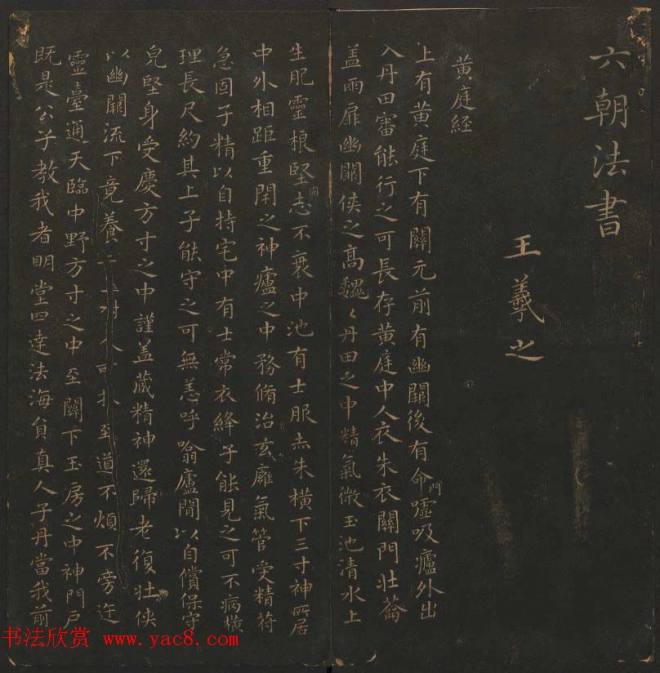 六朝法書
王羲之
黄庭経
上有黄庭下有關元前有幽闕後有命門嘘吸廬外出
入丹田審能行之可長存黄庭中人衣朱衣關門壯蘥
盖兩扉幽闕俠之高魏々丹田之中精氣微玉池清水上
生肥靈根堅志不衰中池有士服赤朱橫下三寸神所居
中外相距重閇之神廬之中務脩治玄廱氣管受精符
急固子精以自持宅中有士常衣絳子能見之可不病橫
理長尺約其上子能守之可無恙呼噏廬間以自償保守
皃堅身受慶方寸之中謹盖藏精神還歸老復壯俠
以幽闕流下竟養 至道不煩不旁迕
靈臺通天臨中野方寸之中至關下玉房之中神門戶
既是公子教我者明堂四達法海負真人子丹當我前
书法欣赏 www.yac8.com